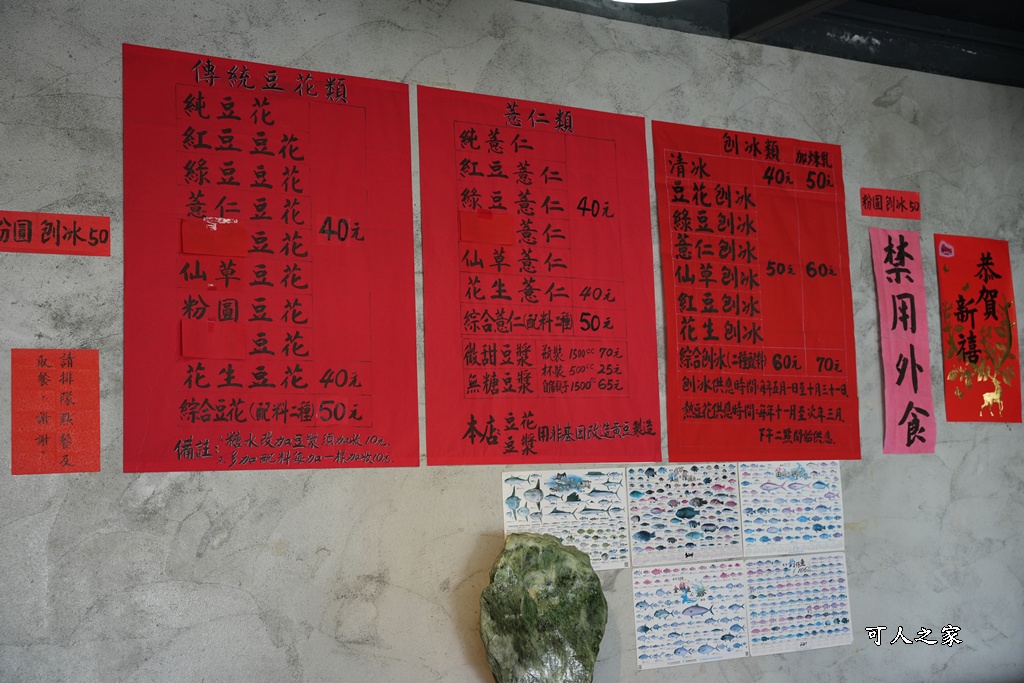 粉圓刨冰50
請排隊點餐及
取餐，謝謝
傳統豆花類
純豆花
紅豆豆花
綠豆豆花
薏仁豆花
豆花
仙草豆花
粉圓豆花
豆花
40元
花生豆花 40元
綜合豆花(配料二種) 50元
備註:1.糖水改加豆漿須加收10元
2.多加配料每加一樣加收10元
薏仁類
純薏仁
紅豆薏仁
綠豆薏仁
薏仁
仙草薏仁
40元
花生薏仁 40元
綜合薏仁(配料二種) 50元
微甜豆漿 瓶裝 1500cc 70元
杯裝 500cc 25元
無糖豆漿 1500cc 65元
本店豆花豆漿用非基因改造黃豆製造
刨冰類 加煉乳
清冰 40元 50元
豆花刨冰
綠豆刨冰
薏仁刨冰
仙草刨冰
紅豆刨冰
花生刨冰
50元 60元
綜合刨冰(二種配料) 60元 70元
刨冰供應時間:每年五月一日至十月三十一日
熱豆花供應時間:每年十一月至次年三月
下午二點開始供應.
粉圓刨冰50
禁用外食
恭賀
新禧
可人之家